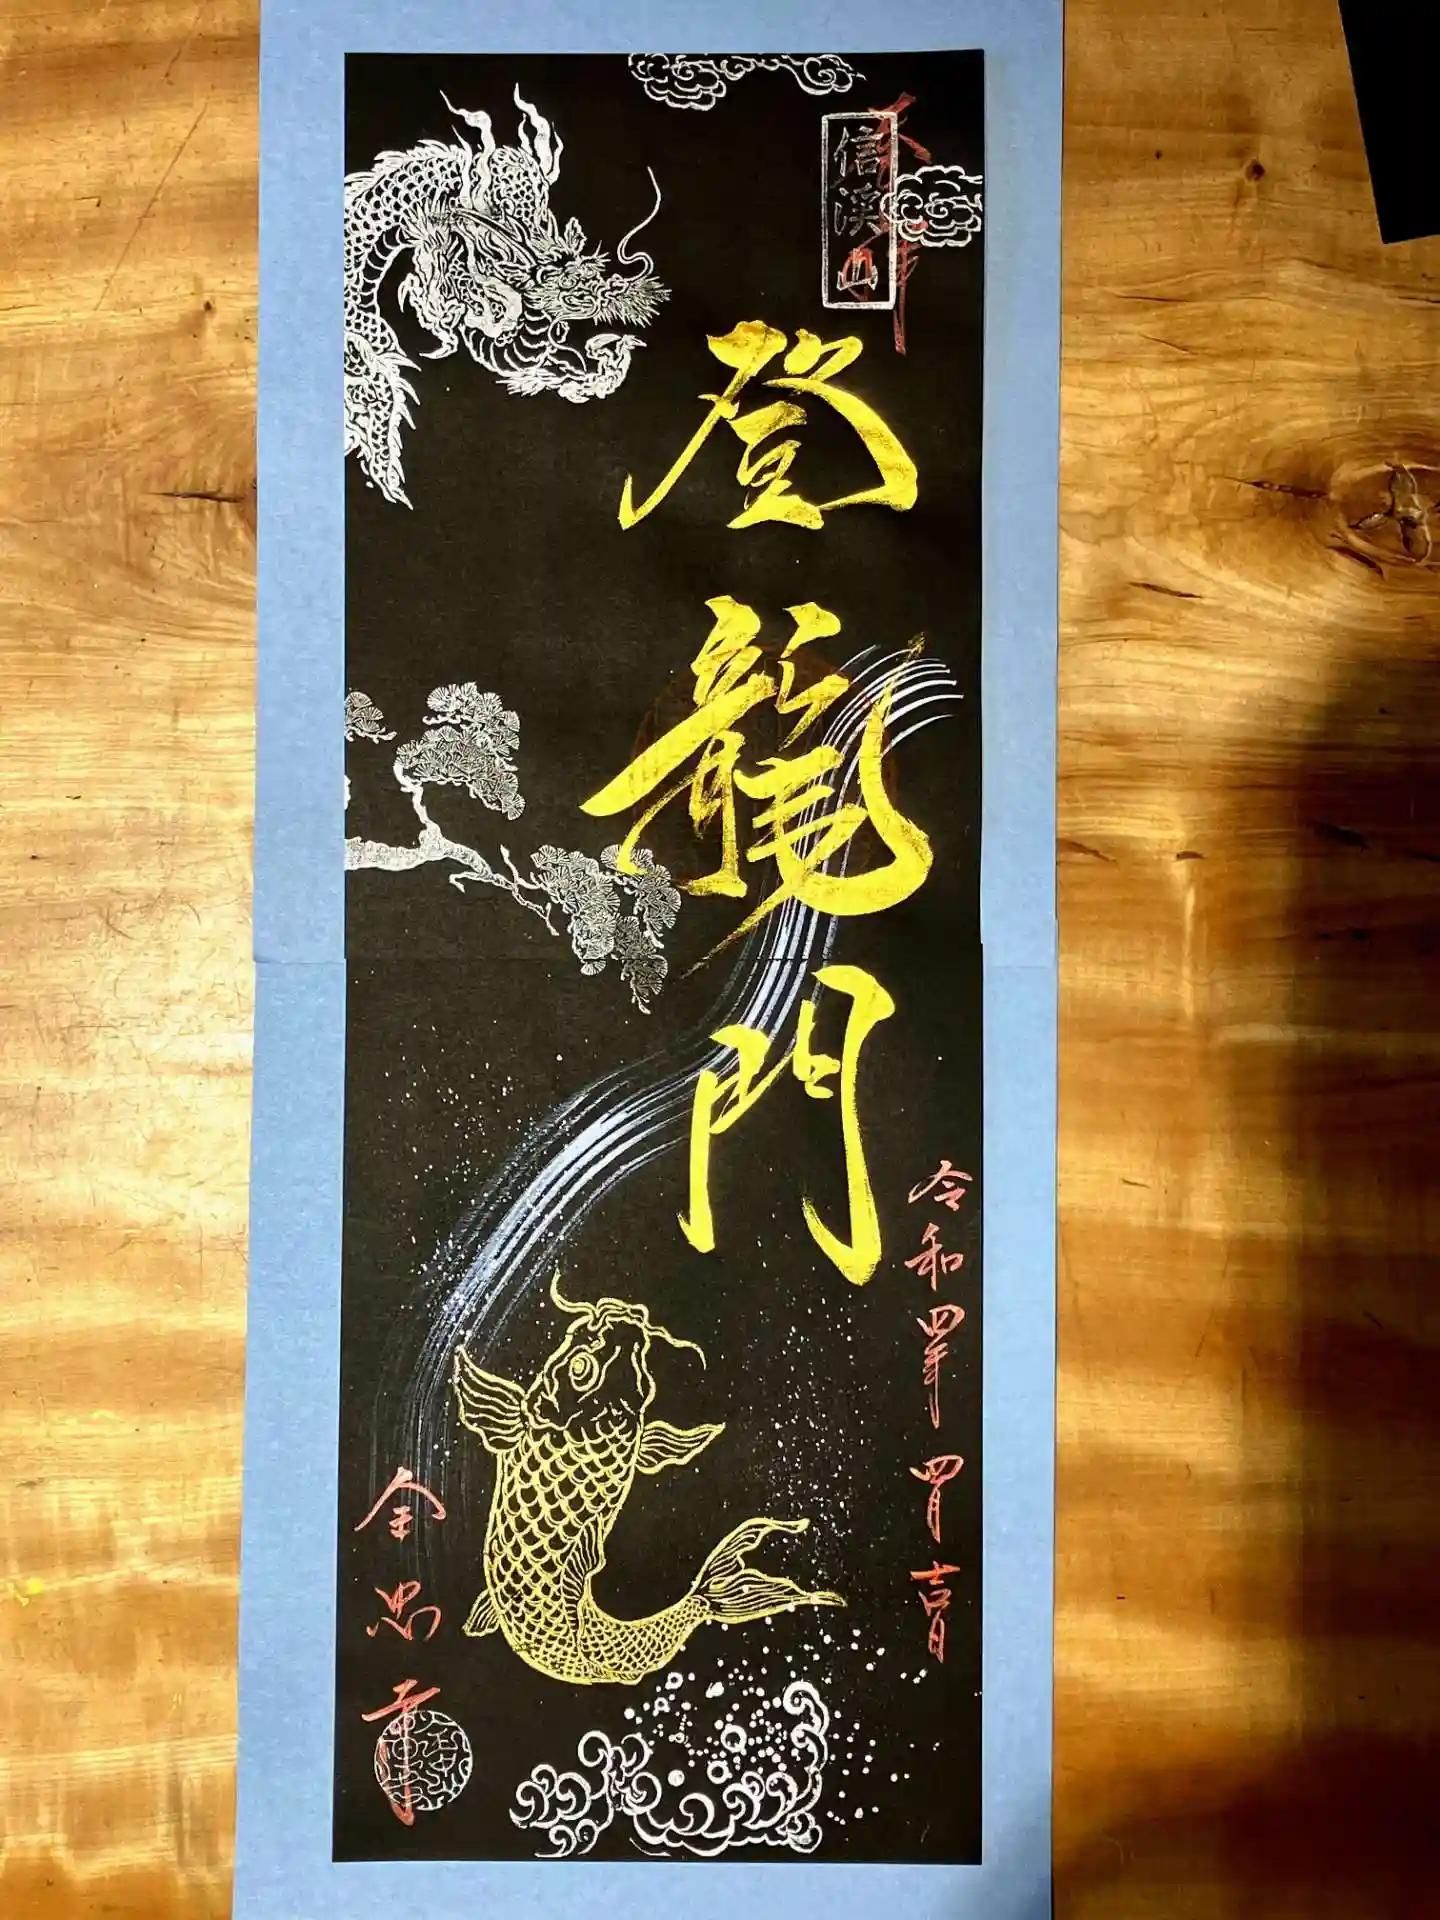 奉拝
信渓山
登龍門
令和四年四月吉日
全忠寺